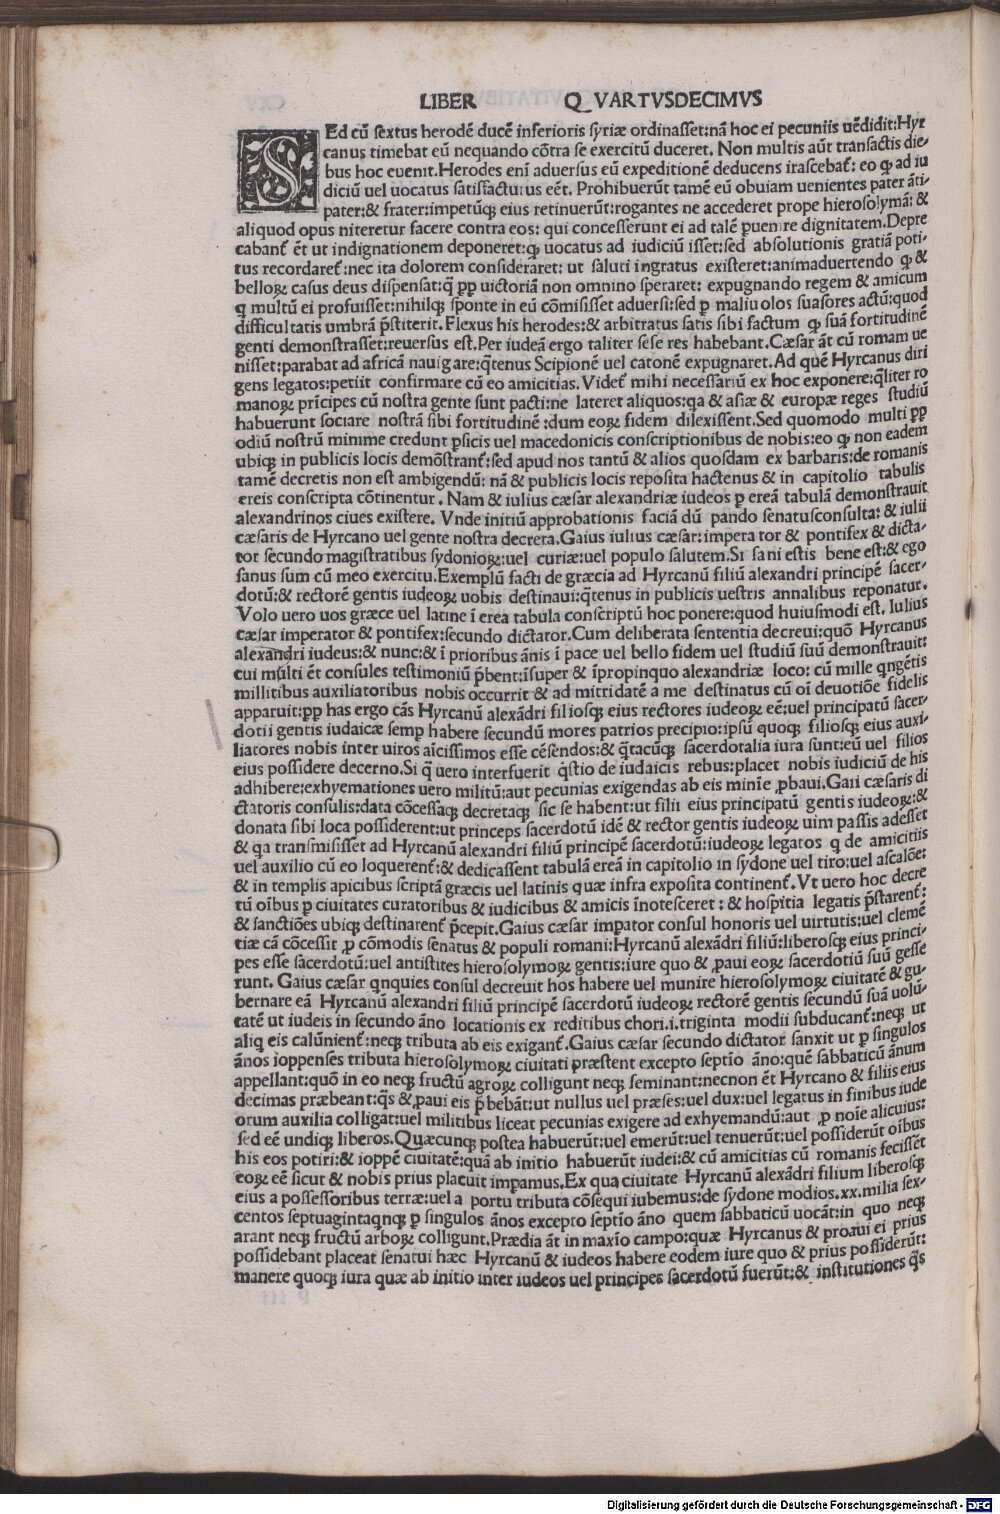 LIBER Q VARTVSDECIMVS
SEd cū ſextus herodē ducē inferioris ſyriæ ordinaſſet:nā hoc ei pecuniis uēdidit:Hyr
canus timebat eū nequando cōtra ſe exercitū duceret. Non multis aūt tranſactis die/
bus hoc euenit.Herodes eni aduerſus eū expeditionē deducens iraſcebat̄: eo ꝙ ad iu
diciū uel uocatus ſatiſfactu:us eēt. Prohibuerūt tamē eū obuiam uenientes pater āti/
pater:& frater:impetūꝗ eius retinuerūt:rogantes ne accederet prope hieroſolymā: &
aliquod opus niteretur facere contra eos: qui conceſſerunt ei ad talē ꝑuenire dignitatem.Depre
cabant̄ ēt ut indignationem deponeret:ꝙ uocatus ad iudiciū iſſet:ſed abſolutionis gratiā poti/
tus recordaret̄:nec ita dolorem conſideraret: ut ſaluti ingratus exiſteret:animaduertendo ꝙ &
belloꝝ caſus deus diſpenſat:q̄ ꝓp uictoriā non omnino ſperaret: expugnando regem & amicum
q multū ei profuiſſet:nihilꝗ ſponte in eū cōmiſiſſet aduerſi:ſed ꝓ maliuolos ſuaſores actū:quod
difficultatis umbrā p̄ſtiterit. Flexus his herodes:& arbitratus ſatis ſibi factum ꝙ ſuā fortitudinē
genti demonſtraſſet:reuerſus eſt.Per iudeā ergo taliter ſeſe res habebant.Cæſar āt cū romam ue
niſſet:parabat ad africā nauigare:q̄tenus Scipionē uel catonē expugnaret.Ad quē Hyrcanus diri
gens legatos:petiit confirmare cū eo amicitias.Videt̄ mihi neceſſariū ex hoc exponere:q̄liter ro
manoꝝ prīcipes cū noſtra gente ſunt pacti:ne lateret aliquos:qa & aſiæ & europæ reges ſtudiū
habuerunt ſociare noſtrā ſibi fortitudinē :dum eoꝝ fidem dilexiſſent.Sed quomodo multi ꝓp
odiū noſtrū minime credunt ꝑſicis uel macedonicis conſcriptionibus de nobis:eo ꝙ non eadem
ubiꝗ in publicis locis demōſtrant̄:ſed apud nos tantū & alios quoſdam ex barbaris:de romanis
tamē decretis non eſt ambigendū: nā & publicis locis repoſita hactenus & in capitolio tabulis
ereis conſcripta cōtinentur. Nam & iulius cæſar alexandriæ iudeos ꝑ ereā tabulā demonſtrauit
alexandrinos ciues exiſtere. Vnde initiū approbationis faciā dū pando ſenatuſconſulta: & iulii
cæſaris de Hyrcano uel gente noſtra decrera.Gaius iulius cæſar:impera tor & pontifex & dicta/
tor ſecundo magiſtratibus ſydonioꝝ:uel curiæ:uel populo ſalutem.Si ſani eſtis bene eſt:& ego
ſanus ſum cū meo exercitu.Exemplū facti de græcia ad Hyrcanū filiū alexandri principē ſacer/
dotū:& rectorē gentis iudeoꝝ uobis deſtinaui:q̄tenus in publicis ueſtris annalibus reponatur.
Volo uero uos græce uel latine ī erea tabula conſcriptū hoc ponere:quod huiuſmodi eſt. Iulius
cæſar imperator & pontifex:ſecundo dictator.Cum deliberata ſententia decreui:quō Hyrcanus
alexandri iudeus:& nunc:& ī prioribus ānis ī pace uel bello fidem uel ſtudiū ſuū demonſtrauit:
cui multi ēt conſules teſtimoniū p̄bent:īſuper & īpropinquo alexandriæ loco: cū mille qngētis
millitibus auxiliatoribus nobis occurrit & ad mitridatē a me deſtinatus cū oī deuotiōe fidelis
apparuit:ꝓp has ergo cās Hyrcanū alexādri filioſꝗ eius rectores iudeoꝝ eē:uel principatū ſacer/
dotii gentis iudaicæ ſemp habere ſecundū mores patrios precipio:ipſū quoꝗ filioſꝗ eius auxi/
liatores nobis inter uiros aīciſſimos eſſe cēſendos:& q̄tacūꝗ ſacerdotalia iura ſunt:eū uel filios
eius poſſidere decerno.Si q̄ uero interfuerit q̄ſtio de iudaicis rebus:placet nobis iudiciū de his
adhibere:exhyemationes uero militū:aut pecunias exigendas ab eis minīe ꝓbaui.Gaii cæſaris di
ctatoris conſulis:data cōceſſaꝗ decretaꝗ ſic ſe habent:ut filii eius principatū gentis iudeoꝝ:&
donata ſibi loca poſſiderent:ut princeps ſacerdotū idē & rector gentis iudeoꝝ uim paſſis adeſſet
& qa tranſmiſiſſet ad Hyrcanū alexandri filiū principē ſacerdotū:iudeoꝝ legatos q de amicitiis
uel auxilio cū eo loquerent̄:& dedicaſſent tabulā ereā in capitolio in ſydone uel tiro:uel aſcalōe:
& in templis apicibus ſcriptā græcis uel latinis quæ infra expoſita continent̄.Vt uero hoc decre
tū oībus ꝑ ciuitates curatoribus & iudicibus & amicis īnoteſceret : & hoſpitia legatis p̄ſtarent̄:
& ſanctiōes ubiꝗ deſtinarent̄ p̄cepit.Gaius cæſar impator conſul honoris uel uirtutis:uel clemē
tiæ cā cōceſſit ꝓ cōmodis ſenatus & populi romani:Hyrcanū alexādri filiū:liberoſꝗ eius princi/
pes eſſe ſacerdotū:uel antiſtites hieroſolymoꝝ gentis:iure quo & ꝓaui eoꝝ ſacerdotiū ſuū geſſe
runt. Gaius cæſar qnquies conſul decreuit hos habere uel munire hieroſolymoꝝ ciuitatē & gu/
bernare eā Hyrcanū alexandri filiū principē ſacerdotū iudeoꝝ rectorē gentis ſecundū ſuā uolū/
tatē ut iudeis in ſecundo āno locationis ex reditibus chori.i.triginta modii ſubducant̄:neꝗ ut
aliq eis calūnient̄:neꝗ tributa ab eis exigant̄.Gaius cæſar ſecundo dictator ſanxit ut ꝑ ſingulos
ānos ioppenſes tributa hieroſolymoꝝ ciuitati præſtent excepto ſeptīo āno:quē ſabbaticū ānum
appellant:quō in eo neꝗ fructū agroꝝ colligunt neꝗ ſeminant:necnon ēt Hyrcano & filiis eius
decimas præbeant:q̄s & ꝓaui eis p̄bebāt:ut nullus uel præſes:uel dux:uel legatus in finibus iude
orum auxilia colligat:uel militibus liceat pecunias exigere ad exhyemandū:aut ꝓ noīe alicuius:
ſed eē undiꝗ liberos.Quæcunꝗ poſtea habuerūt:uel emerūt:uel tenuerūt:uel poſſiderūt oībus
his eos potiri:& ioppē ciuitatē:quā ab initio habuerūt iudei:& cū amicitias cū romanis feciſſēt
eoꝝ eē ſicut & nobis prius placuit impamus.Ex qua ciuitate Hyrcanū alexādri filium liberoſꝗ
eius a poſſeſſoribus terræ:uel a portu tributa cōſequi iubemus:de ſydone modios.xx.milia ſex/
centos ſeptuagintaqnꝗ ꝑ ſingulos ānos excepto ſeptīo āno quem ſabbaticū uocāt:in quo neꝗ
arant neꝗ fructū arboꝝ colligunt.Prædia āt in maxīo campo:quæ Hyrcanus & proaui ei prius
poſſidebant placeat ſenatui hæc Hyrcanū & iudeos habere eodem iure quo & prius poſſiderūt:
manere quoꝗ iura quæ ab initio inter iudeos uel principes ſacerdotū fuerūt:& inſtitutiones q̄s
Digitalisierung gefördert durch die Deutsche Forschungsgemeinschaft - DFG